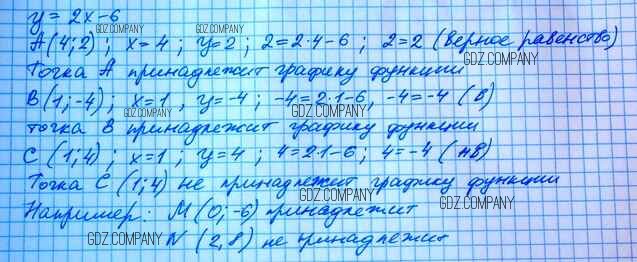 y = 2x-6
GDZ.COMPANY GDZ.COMPANY
A(4;2); x=4; y=2; 2=2·4-6; 2=2 (верное равенство)
GDZ.COMPANY
Точка А принадлежит графику функции
B(1;-4); x=1, y=-4; -4=2·1-6, -4=-4 (В)
GDZ.COMPANY GDZ.COMPANY
точка В принадлежит графику функции
C(1;4); x=1; y=4; 4=2·1-6; 4=-4 (НВ)
Точка С (1;4) не принадлежит графику функции
GDZ.COMPANY GDZ.COMPANY
Например: M(0;-6) принадлежит
GDZ.COMPANY N (2,8) не принадлежит
GDZ.COMPANY